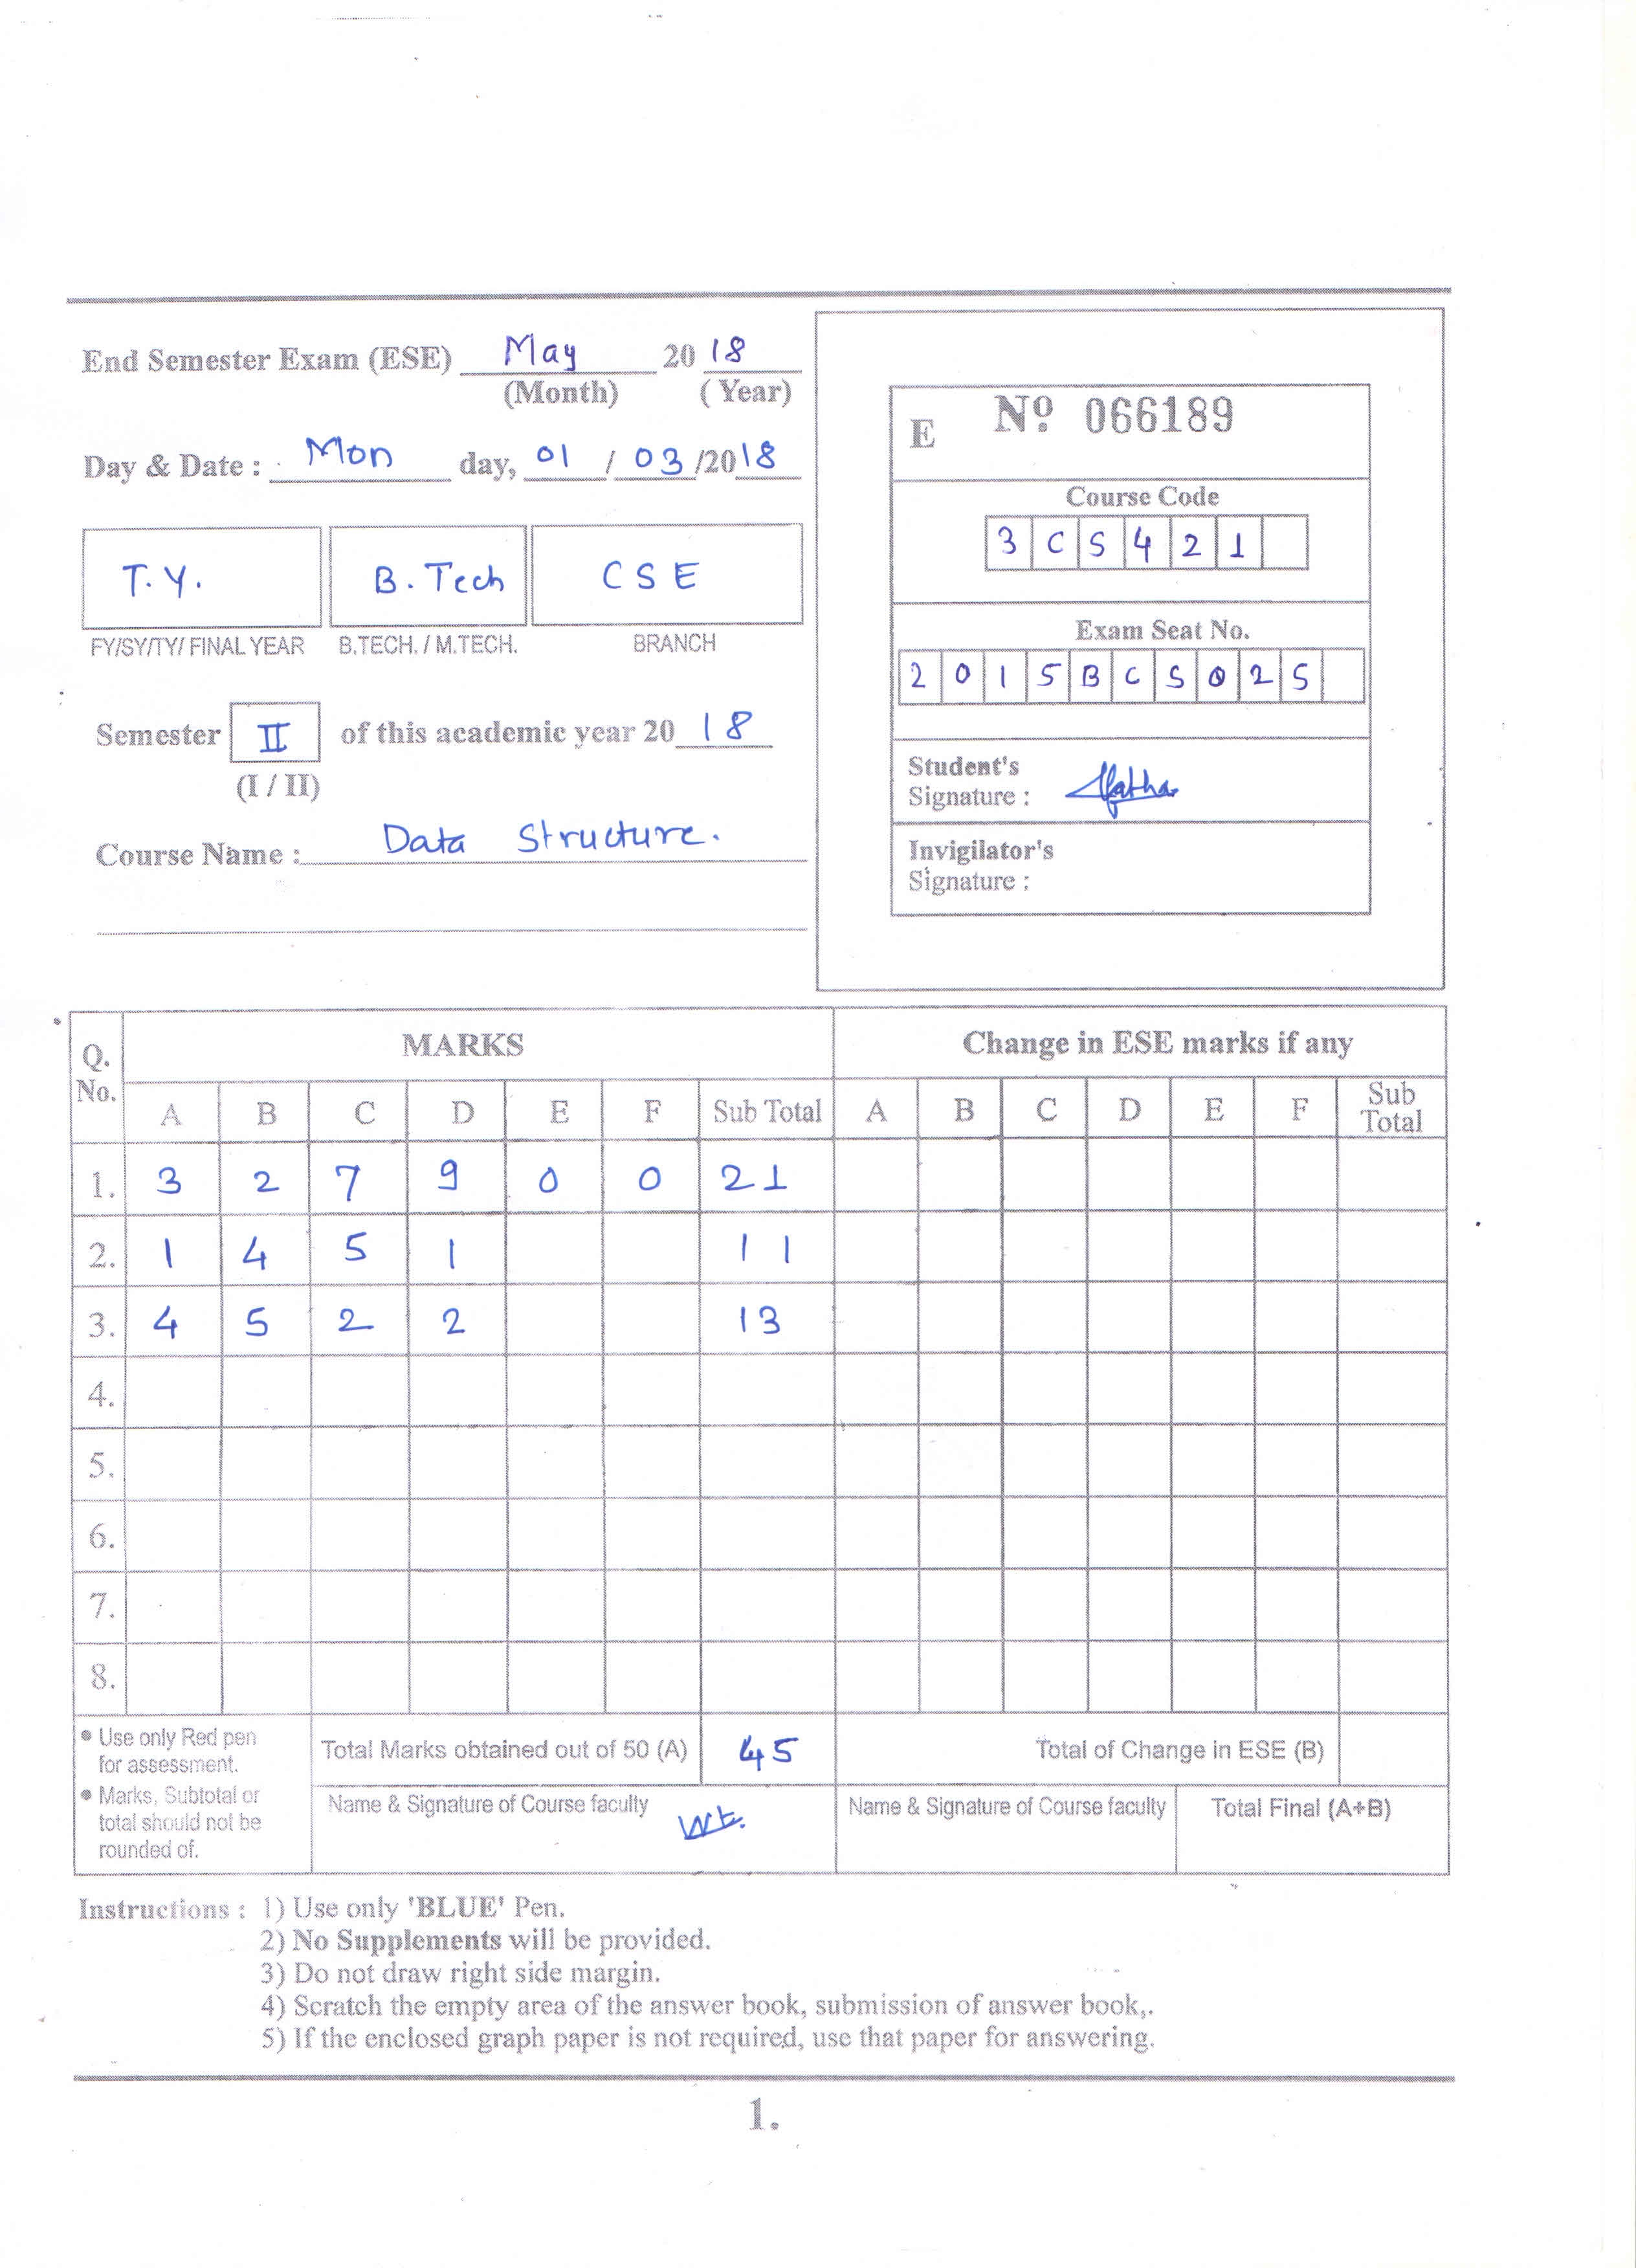 End Semester Exam (ESE) May 20 18
(Month) (Year)
Day & Date : Mon day, 01 / 03 /2018
T.Y. B.Tech CSE
FY/SY/TY/ FINAL YEAR B.TECH. / M.TECH. BRANCH
Semester II of this academic year 20 18
(I / II)
Course Name : Data Structure.
E Nº 066189
Course Code
3 C S 4 2 1
Exam Seat No.
2 0 1 5 B C S 0 2 5
Student's
Signature :
Invigilator's
Signature :
Q. No. MARKS Change in ESE marks if any
A B C D E F Sub Total A B C D E F Sub Total
1. 3 2 7 9 0 0 21
2. 1 4 5 1 11
3. 4 5 2 2 13
4.
5.
6.
7.
8.
• Use only Red pen
for assessment.
• Marks, Subtotal or
total should not be
rounded of.
Total Marks obtained out of 50 (A) 45 Total of Change in ESE (B)
Name & Signature of Course faculty Name & Signature of Course faculty Total Final (A+B)
Instructions : 1) Use only 'BLUE' Pen.
2) No Supplements will be provided.
3) Do not draw right side margin.
4) Scratch the empty area of the answer book, submission of answer book,.
5) If the enclosed graph paper is not required, use that paper for answering.
1.